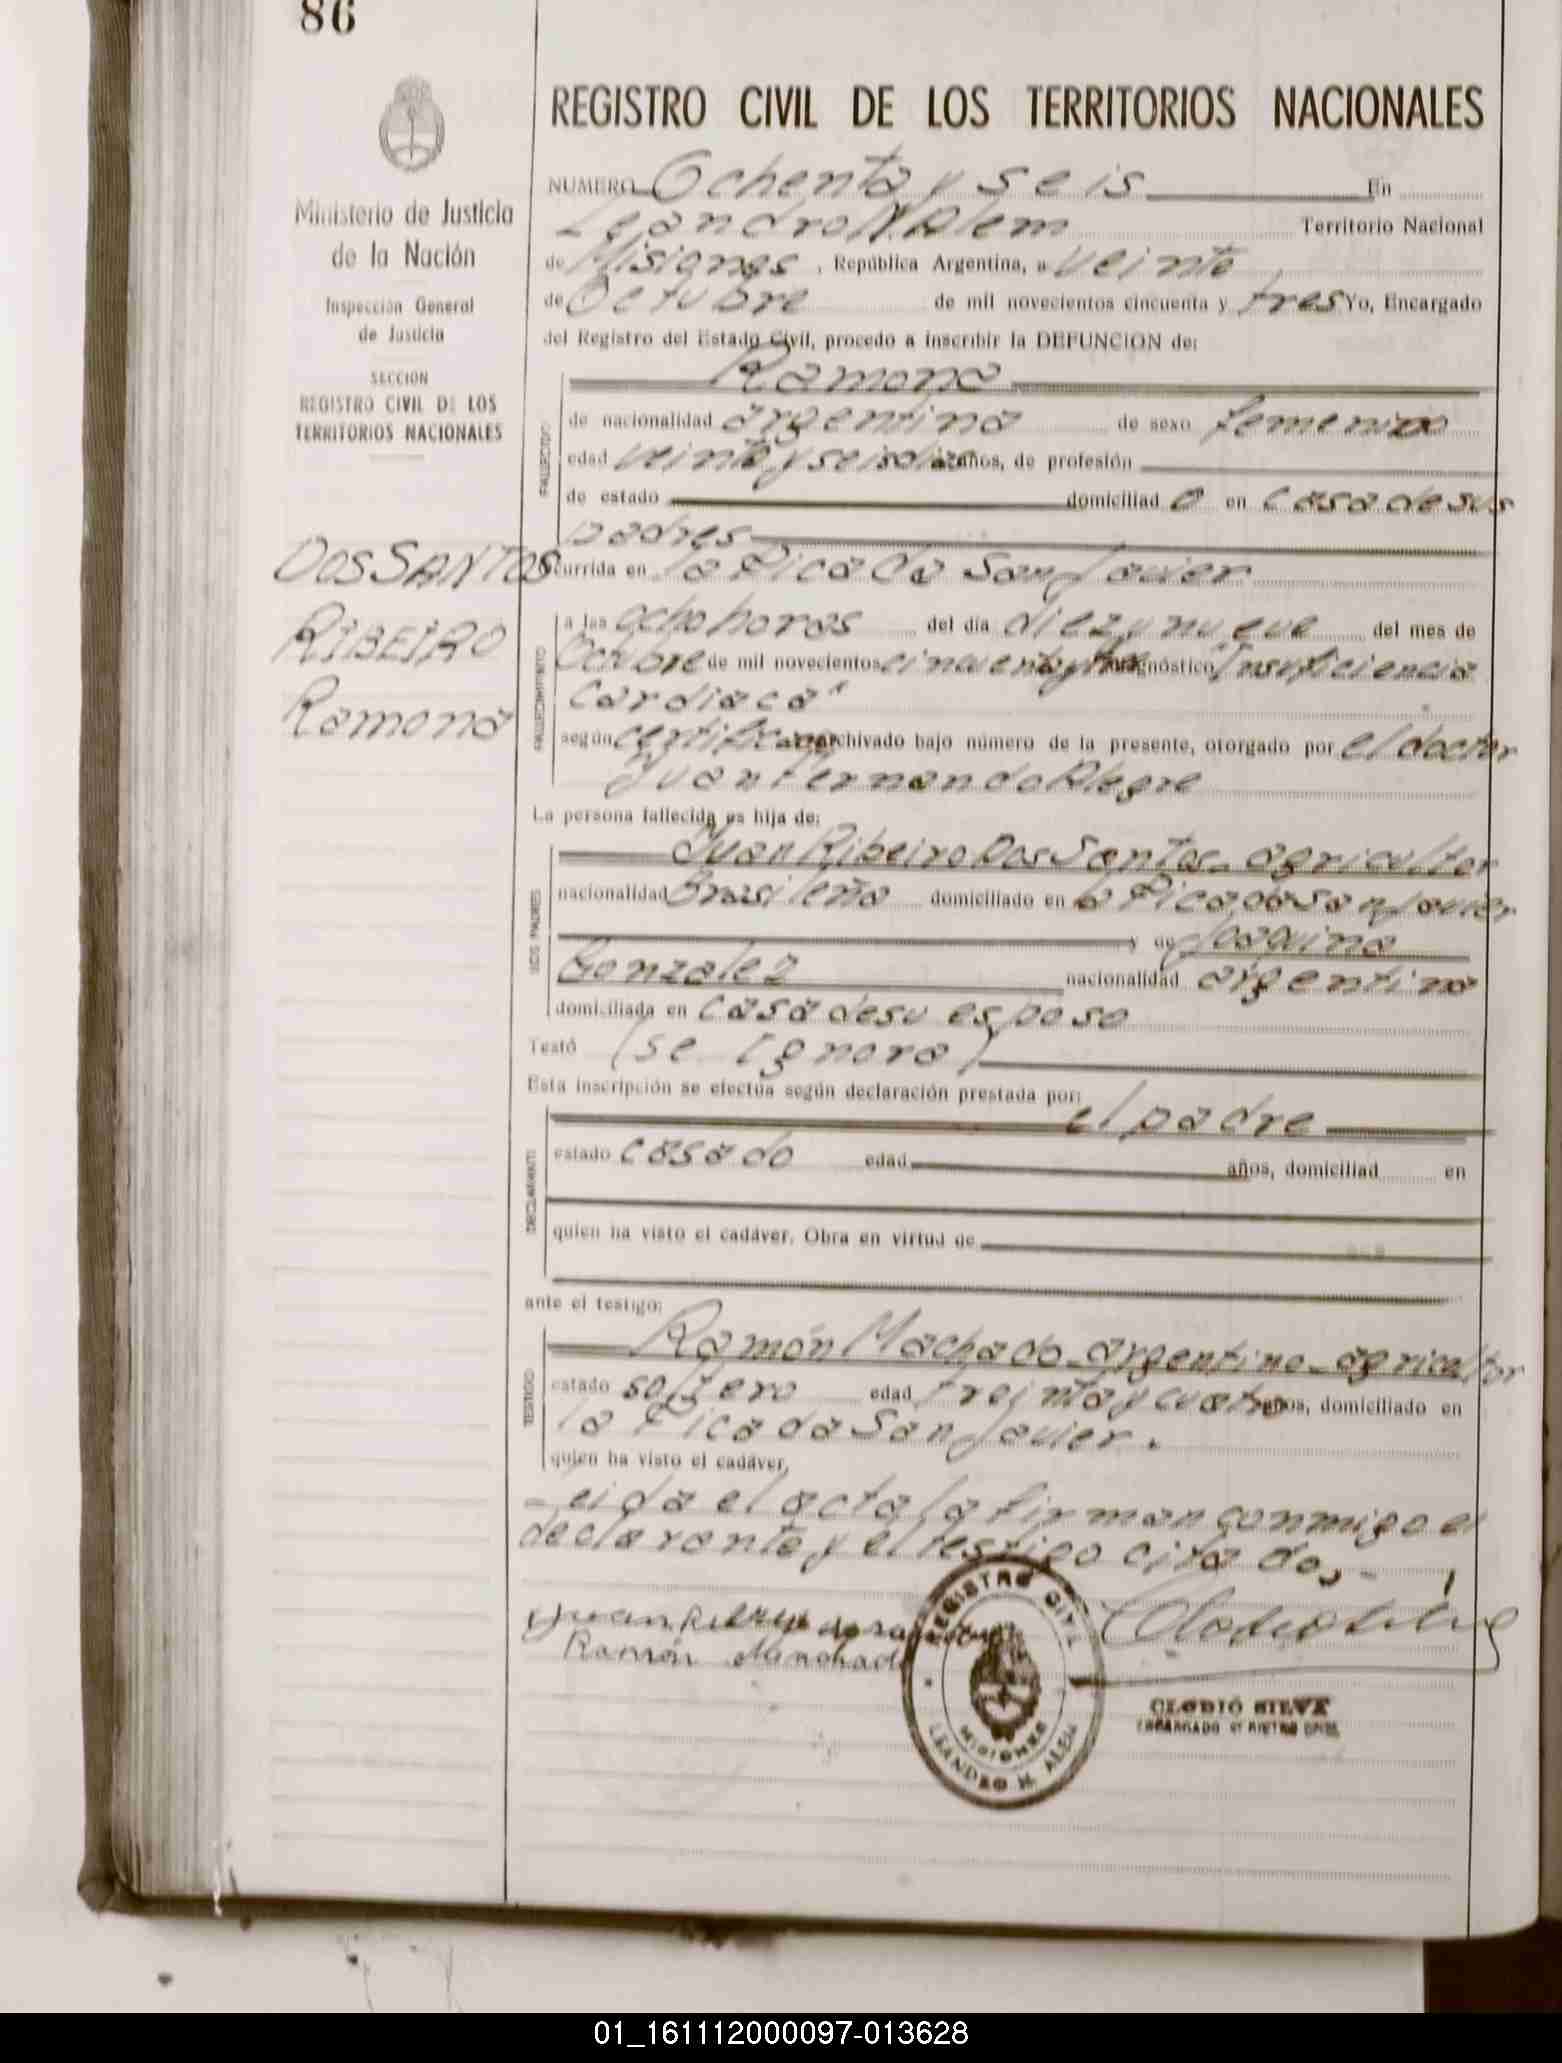 86
REGISTRO CIVIL DE LOS TERRITORIOS NACIONALES
Ministerio de Justicia
de la Nación
Inspección General
de Justicia
SECCION
REGISTRO CIVIL DE LOS
TERRITORIOS NACIONALES
DOS SANTOS
RIBEIRO
Ramona
NUMERO Ochenta y seis En
Leandro N. Alem Territorio Nacional
de Misiones, República Argentina, a veinte
de Octubre de mil novecientos cincuenta y tres Yo, Encargado
del Registro del Estado Civil, procedo a inscribir la DEFUNCION de:
Ramona
FALLECIDO
de nacionalidad argentina de sexo femenino
edad veinte y seis dias años, de profesión
de estado domiciliad o en casa de sus
padres
ocurrida en la Picada San Javier
FALLECIMIENTO
a las ocho horas del día diez y nueve del mes de
Octubre de mil novecientos cincuenta y tres diagnóstico "Insuficiencia
Cardiaca"
según certificado archivado bajo número de la presente, otorgado por el doctor
Juan Fernando Alegre
La persona fallecida es hija de:
SUS PADRES
Juan Ribeiro Dos Santos - agricultor
nacionalidad Brasileña domiciliado en la Picada San Javier
y de Joaquina
Gonzalez nacionalidad argentina
domiciliada en casa de su esposo
Testó (se ignora)
Esta inscripción se efectúa según declaración prestada por:
el padre
DECLARANTE
estado casado edad años, domiciliad en
quien ha visto el cadáver. Obra en virtud de
ante el testigo:
Ramón Machado - argentino - agricultor
TESTIGO
estado soltero edad treinta y cuatro años, domiciliado en
la Picada San Javier.
quien ha visto el cadáver.
Leida el acta la firman conmigo el
declarante y el testigo citado, -
Juan Ribeiro dos santos
Ramón Manchado
REGISTRO CIVIL
MISIONES
LEANDRO N. ALEM
Clodio Silva
CLODIO SILVA
ENCARGADO REGISTRO CIVIL
01_161112000097-013628